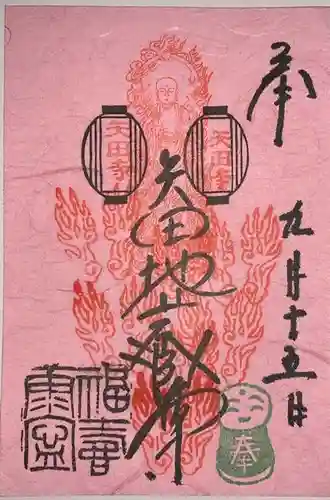 奉
九月十五日
矢田地蔵尊
矢田寺
矢田寺
奉